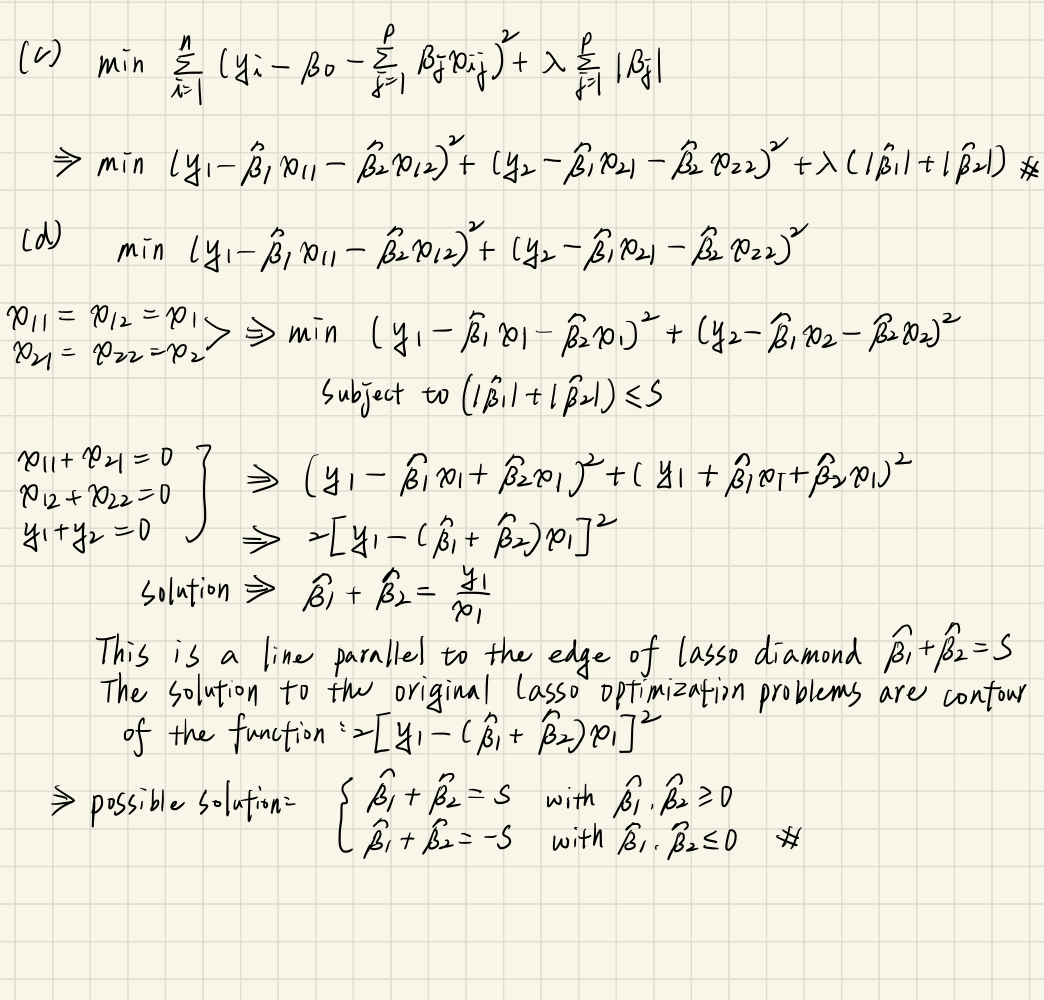 (c) min Σ_{i=1}^{n} (y_i − β_0 − Σ_{j=1}^{p} β_j x_{ij})^2 + λ Σ_{j=1}^{p} |β_j|
⇒ min (y_1 − β̂_1 x_{11} − β̂_2 x_{12})^2 + (y_2 − β̂_1 x_{21} − β̂_2 x_{22})^2 + λ (|β̂_1| + |β̂_2|) #
(d) min (y_1 − β̂_1 x_{11} − β̂_2 x_{12})^2 + (y_2 − β̂_1 x_{21} − β̂_2 x_{22})^2
x_{11} = x_{12} = x_1
x_{21} = x_{22} = x_2 ⇒ min (y_1 − β̂_1 x_1 − β̂_2 x_1)^2 + (y_2 − β̂_1 x_2 − β̂_2 x_2)^2
subject to (|β̂_1| + |β̂_2|) ≤ S
x_{11} + x_{21} = 0
x_{12} + x_{22} = 0 ⇒ (y_1 − β̂_1 x_1 + β̂_2 x_1)^2 + (y_1 + β̂_1 x_1 + β̂_2 x_1)^2
y_1 + y_2 = 0 ⇒ 2[y_1 − (β̂_1 + β̂_2) x_1]^2
solution ⇒ β̂_1 + β̂_2 = y_1 / x_1
This is a line parallel to the edge of lasso diamond β̂_1 + β̂_2 = S
The solution to the original lasso optimization problems are contour
of the function : 2[y_1 − (β̂_1 + β̂_2) x_1]^2
⇒ possible solution = { β̂_1 + β̂_2 = S with β̂_1 , β̂_2 ≥ 0
β̂_1 + β̂_2 = −S with β̂_1 , β̂_2 ≤ 0 #